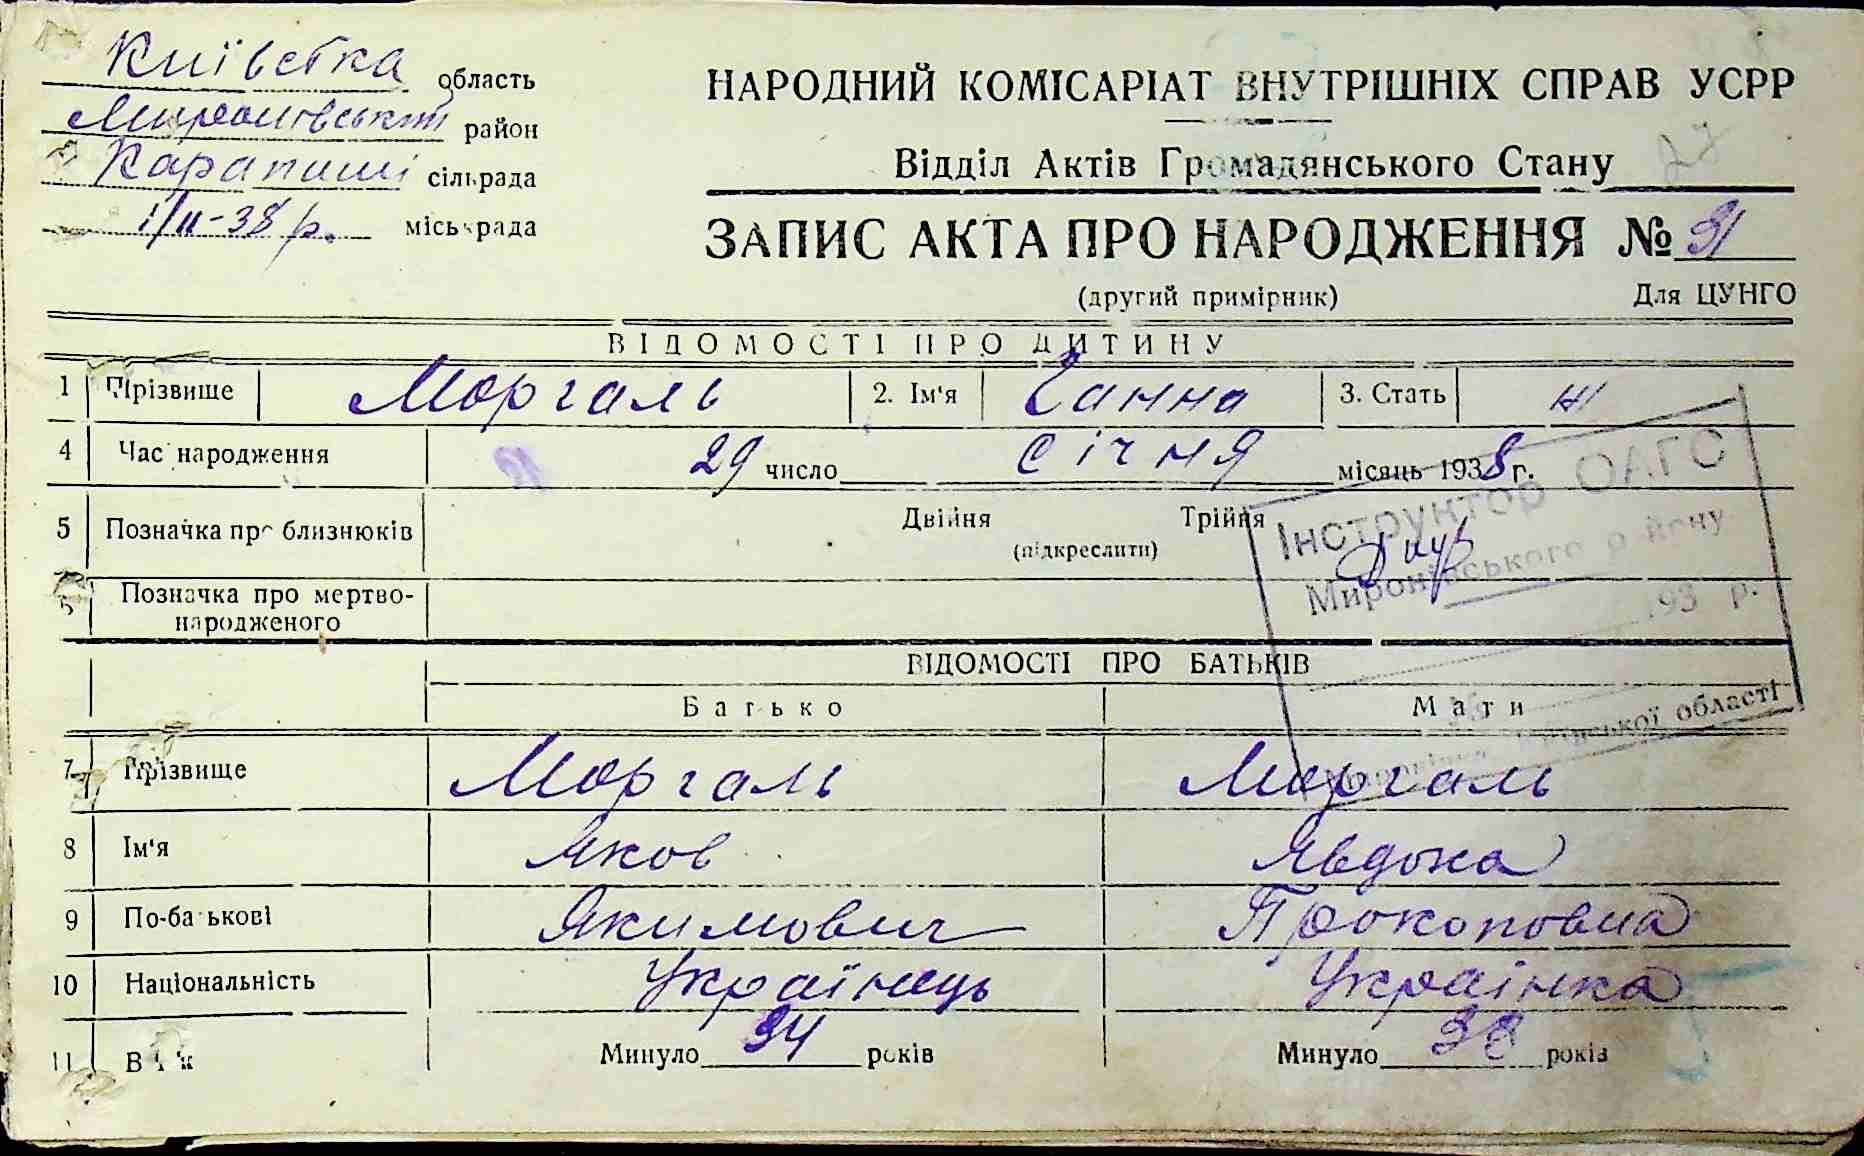 Київська область
Миронівський район
Карапиші сільрада
1/II-38 р. міськрада
НАРОДНИЙ КОМІСАРІАТ ВНУТРІШНІХ СПРАВ УСРР
Відділ Актів Громадянського Стану
27
ЗАПИС АКТА ПРО НАРОДЖЕННЯ № 31
(другий примірник) Для ЦУНГО
ВІДОМОСТІ ПРО ДИТИНУ
1 Прізвище Моргаль 2. Ім'я Ганна 3. Стать ж
4 Час народження 29 число січня місяць 1938 г.
5 Позначка про близнюків Двійня Трійня
(підкреслити)
6 Позначка про мертво-
народженого
Інструктор ОАГС
Миронівського району
193 р.
Київської області
ВІДОМОСТІ ПРО БАТЬКІВ
Батько Мати
7 Прізвище Моргаль Моргаль
8 Ім'я Яков Явдоха
9 По-батькові Якимович Прокоповна
10 Національність Українець Українка
11 Вік Минуло 34 років Минуло 38 років